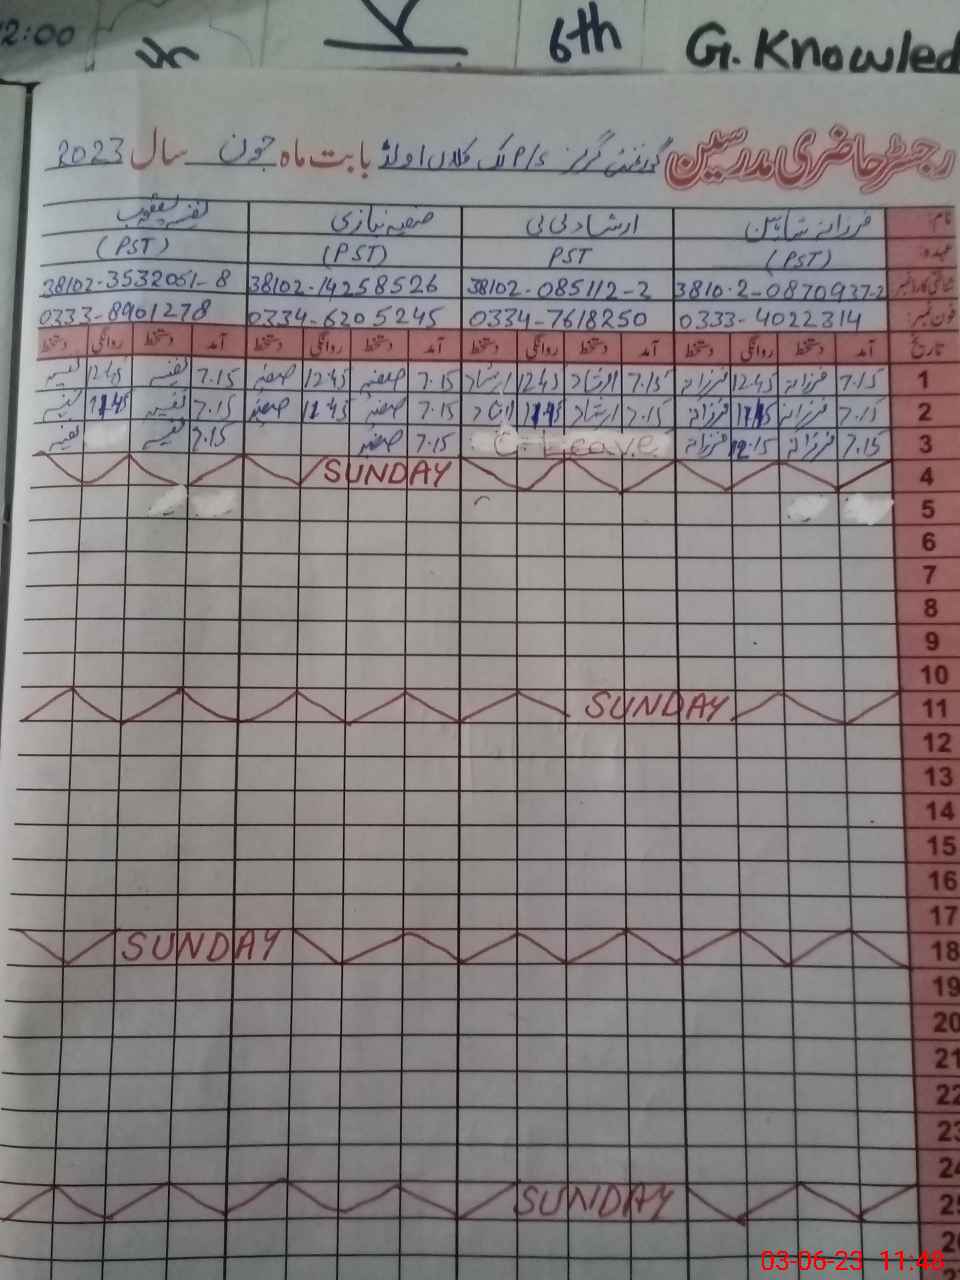 12:00 th V 6th G. Knowled
رجسٹر حاضری مدرسین گورنمنٹ گرلز P/S تک کلاں اولڈ بابت ماہ جون سال 2023
نام: فرزانہ شاہین ارشاد بی بی صفیہ نیازی نفیسہ یعقوب
عہدہ: (PST) PST (PST) (PST)
شناختی کارڈ نمبر 3810.2-0870937-2 38102-085112-2 38102-14258526 38102-3532051-8
فون نمبر: 0333-4022314 0334-7618250 0334-6205245 0333-8901278
تاریخ آمد دستخط روانگی دستخط آمد دستخط روانگی دستخط آمد دستخط روانگی دستخط آمد دستخط روانگی دستخط
1 7.15 فرزانہ 12.45 فرزانہ 7.15 ارشاد 12.45 ارشاد 7.15 صفیہ 12.45 صفیہ 7.15 نفیسہ 12.45 نفیسہ
2 7.15 فرزانہ 11.45 فرزانہ 7.15 ارشاد 11.45 ارشاد 7.15 صفیہ 11.45 صفیہ 7.15 نفیسہ 11.45 نفیسہ
3 7.15 فرزانہ 12.15 فرزانہ C. Leave 7.15 صفیہ 7.15 نفیسہ نفیسہ
4 SUNDAY
5
6
7
8
9
10
11 SUNDAY
12
13
14
15
16
17
18 SUNDAY
19
20
21
22
23
24
25 SUNDAY
26
03-06-23 11:48